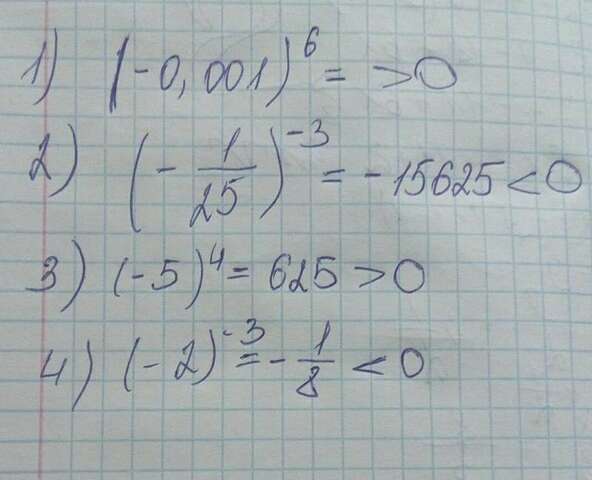 1) (-0,001)^6 = >0
2) (-1/25)^-3 = -15625<0
3) (-5)^4 = 625>0
4) (-2)^-3 = -1/8 <0